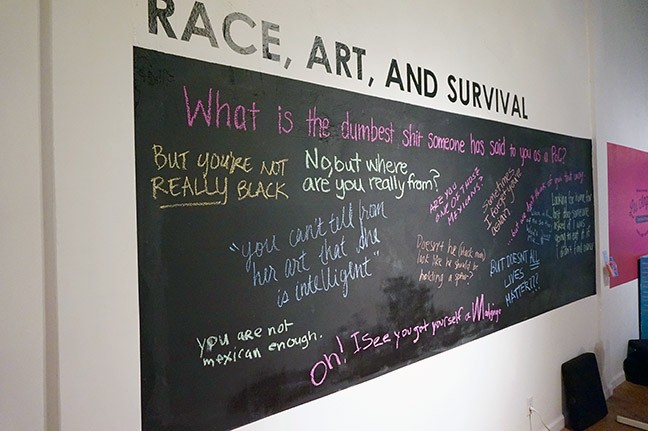 RACE, ART, AND SURVIVAL
What is the dumbest shit someone has said to you as a PoC?
BUT YOU'RE NOT
REALLY BLACK
No, but where
are you really from?
ARE YOU
ONE OF THOSE
MEXICANS?
Sometimes
I forget you're
asian
...but we don't think of you that way...
Looking for home
"you can't tell from
her art that she
is intelligent"
Doesn't he (black man)
look like he should be
holding a spear?
BUT DOESN'T ALL
LIVES
MATTER?!?
you are not
mexican enough.
Oh! I see you got yourself a